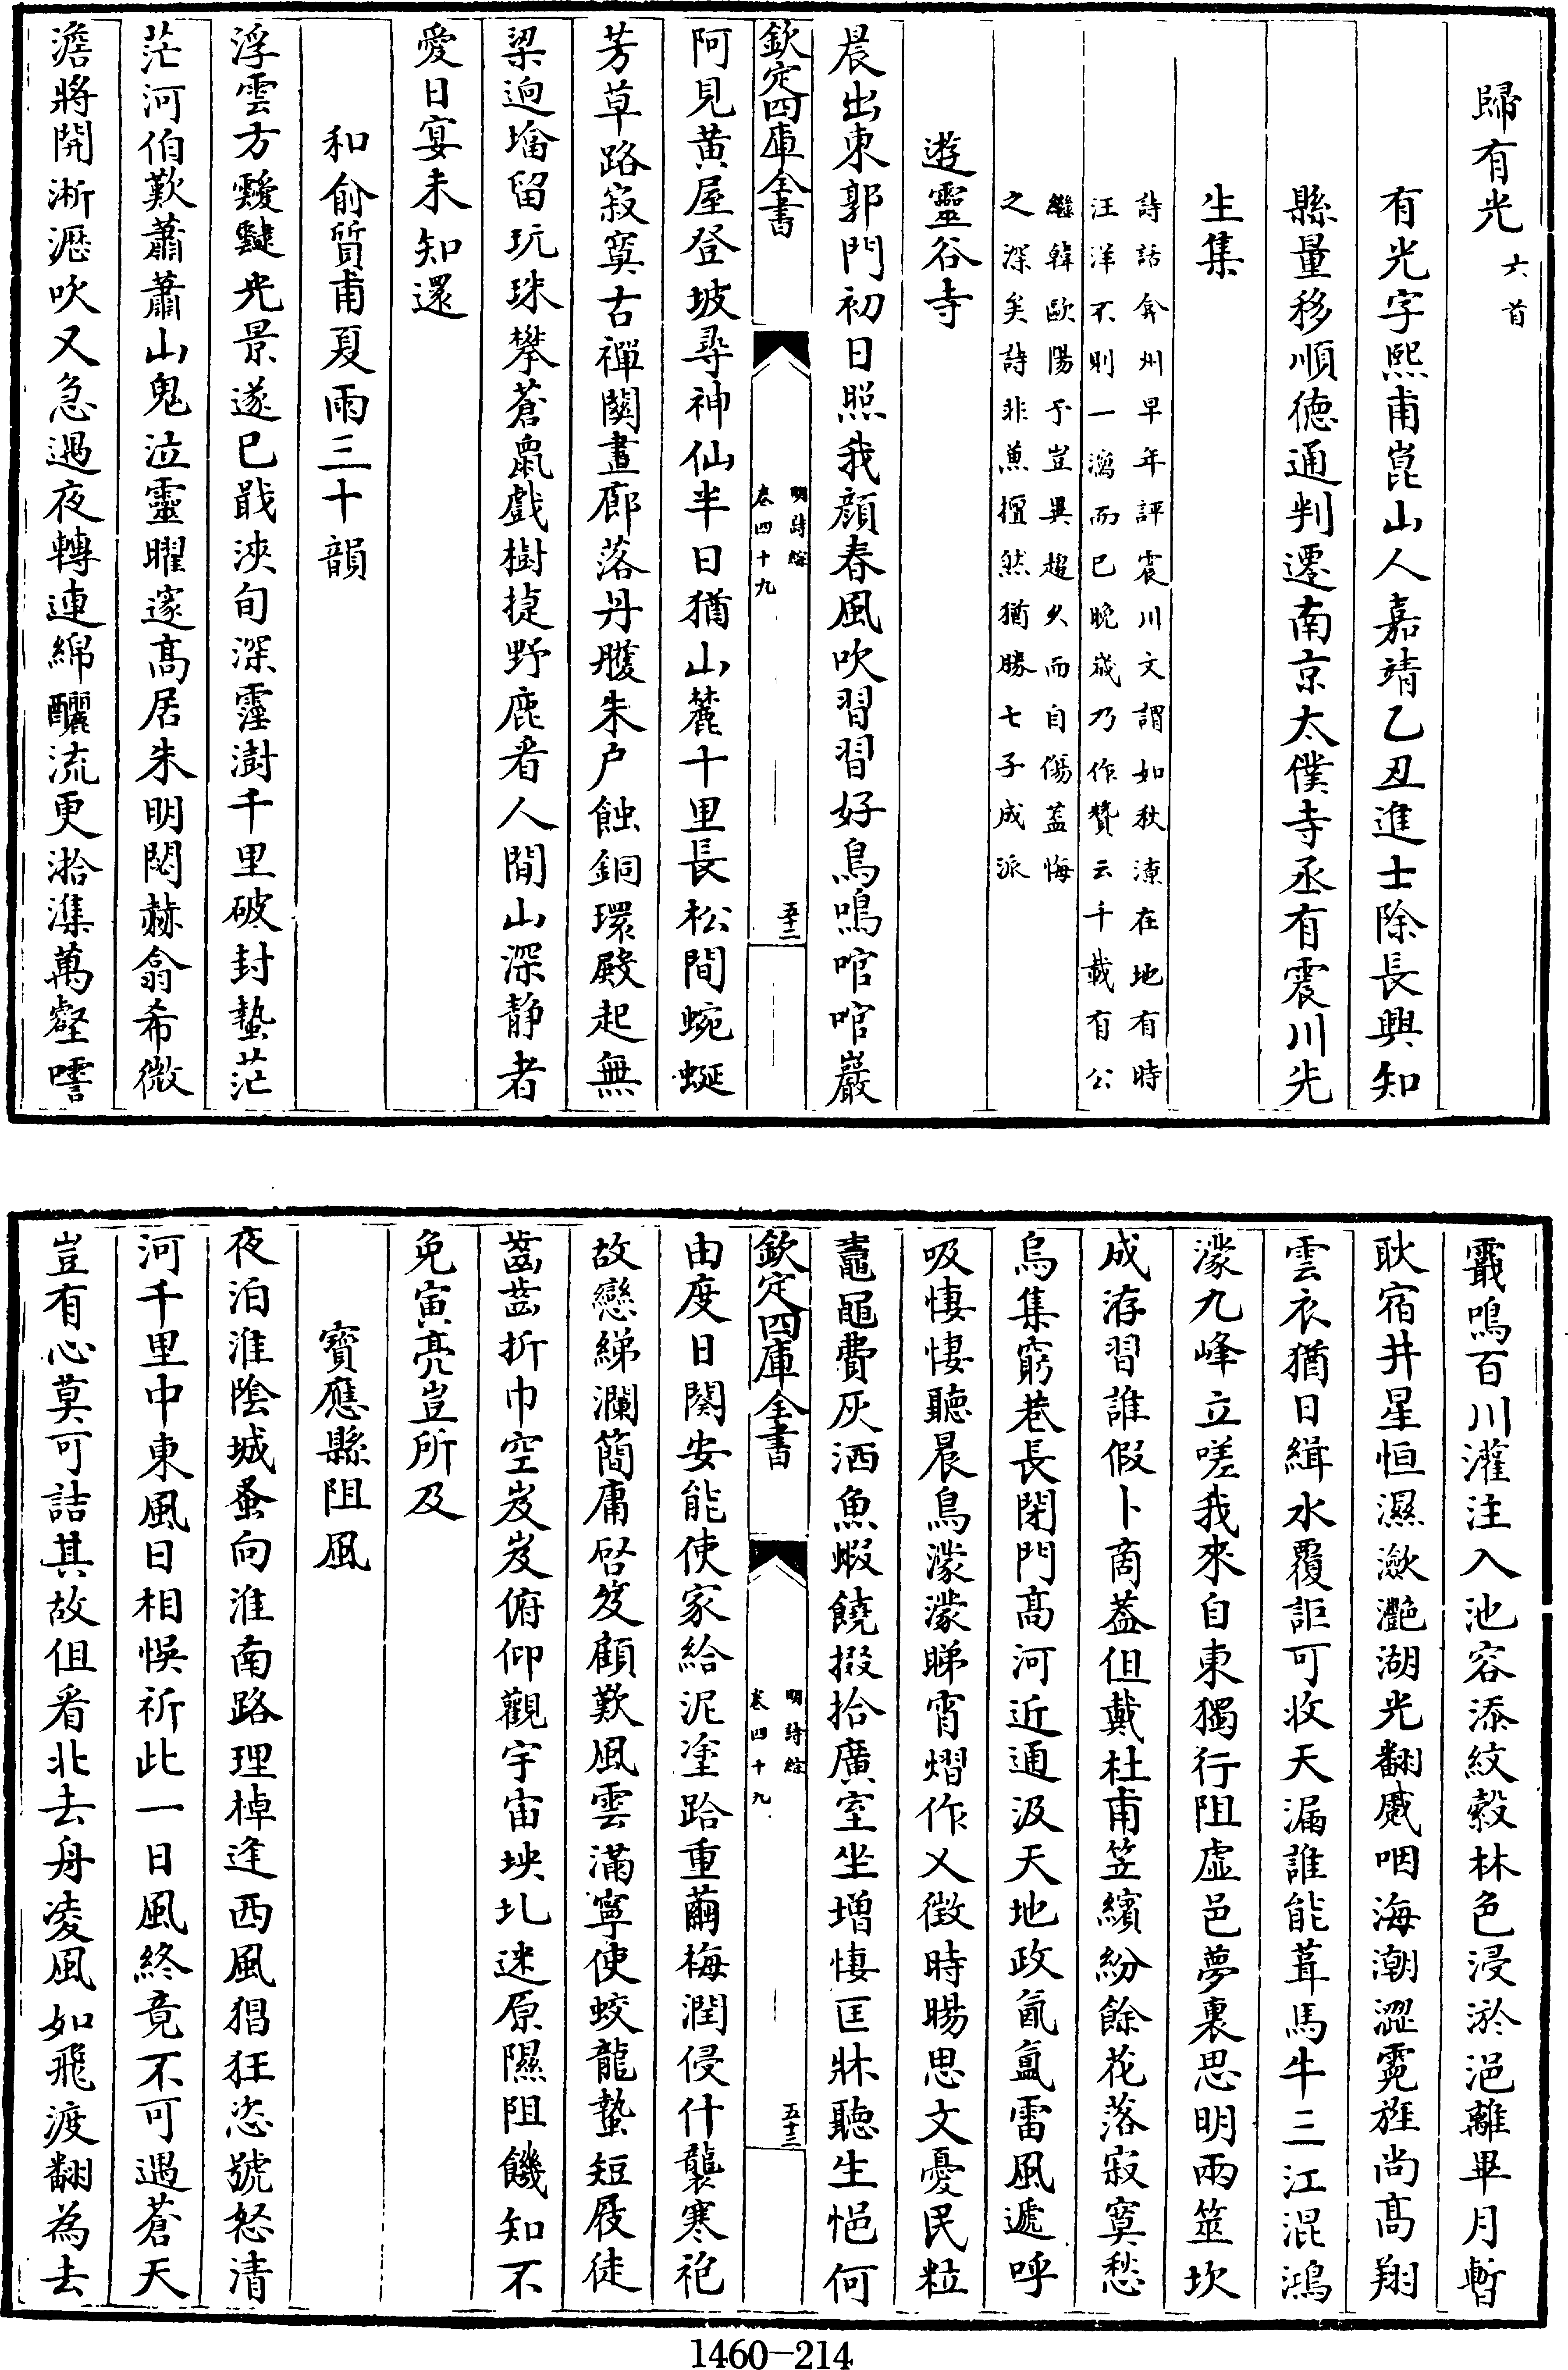 歸有光六首
有光字熙甫崑山人嘉靖乙丑進士除長興知
縣量移順徳通判遷南京太僕寺丞有震川先
生集
詩話弇州早年評震川文謂如秋潦在地有時
汪洋不則一瀉而已晚嵗乃作贊云千載有公
繼韓歐陽予豈異趨久而自傷蓋悔
之深矣詩非兼擅然猶勝七子成派
遊靈谷寺
晨出東郭門初日照我顔春風吹習習好鳥鳴喧喧巖
欽定四庫全書
明詩綜
卷四十九
五十二
阿見黄屋登坡尋神仙半日猶山麓十里長松間蜿蜒
芳草路寂寞古禪闗畫廊落丹雘朱户蝕銅環殿起無
梁逈塔留玩珠攀蒼鼠戲樹捷野鹿看人閒山深静者
愛日宴未知還
和俞質甫夏雨三十韻
浮雲方靉靆光景遂已戢浹旬深霪澍千里破封蟄茫
茫河伯歎蕭蕭山鬼泣靈曜邃髙居朱明閟赫翕希微
澹將開淅瀝吹又急過夜轉連綿釃流更湁潗萬壑嚖
霵鳴百川灌注入池容添紋縠林色浸淤浥離畢月暫
耿宿井星恒濕瀲灧湖光翻𤄃咽海潮澀霓旌尚髙翔
雲衣猶日緝水覆詎可收天漏誰能葺馬牛三江混鴻
濛九峰立嗟我來自東獨行阻虛邑夢裏思明兩筮坎
成洊習誰假卜商蓋但戴杜甫笠繽紛餘花落寂寞愁
烏集窮巷長閉門髙河近通汲天地政氤氲雷風遞呼
吸悽悽聽晨鳥濛濛睇宵熠作乂徴時暘思文憂民粒
鼃黽費灰洒魚蝦饒掇拾廣室坐增悽匡牀聽生悒何
欽定四庫全書
明詩綜
卷四十九
五十三
由度日闋安能使家給泥塗跲重繭梅潤侵什襲寒袍
故戀綈瀾簡庸啓笈顧歎風雲滿寧使蛟龍蟄短屐徒
齒齒折巾空岌岌俯仰觀宇宙坱圠迷原隰阻饑知不
免寅亮豈所及
寳應縣阻風
夜泊淮陰城蚤向淮南路理棹逢西風猖狂恣號怒清
河千里中東風日相悞祈此一日風終竟不可遇蒼天
豈有心莫可詰其故但看北去舟凌風如飛渡翻為去
1460-214